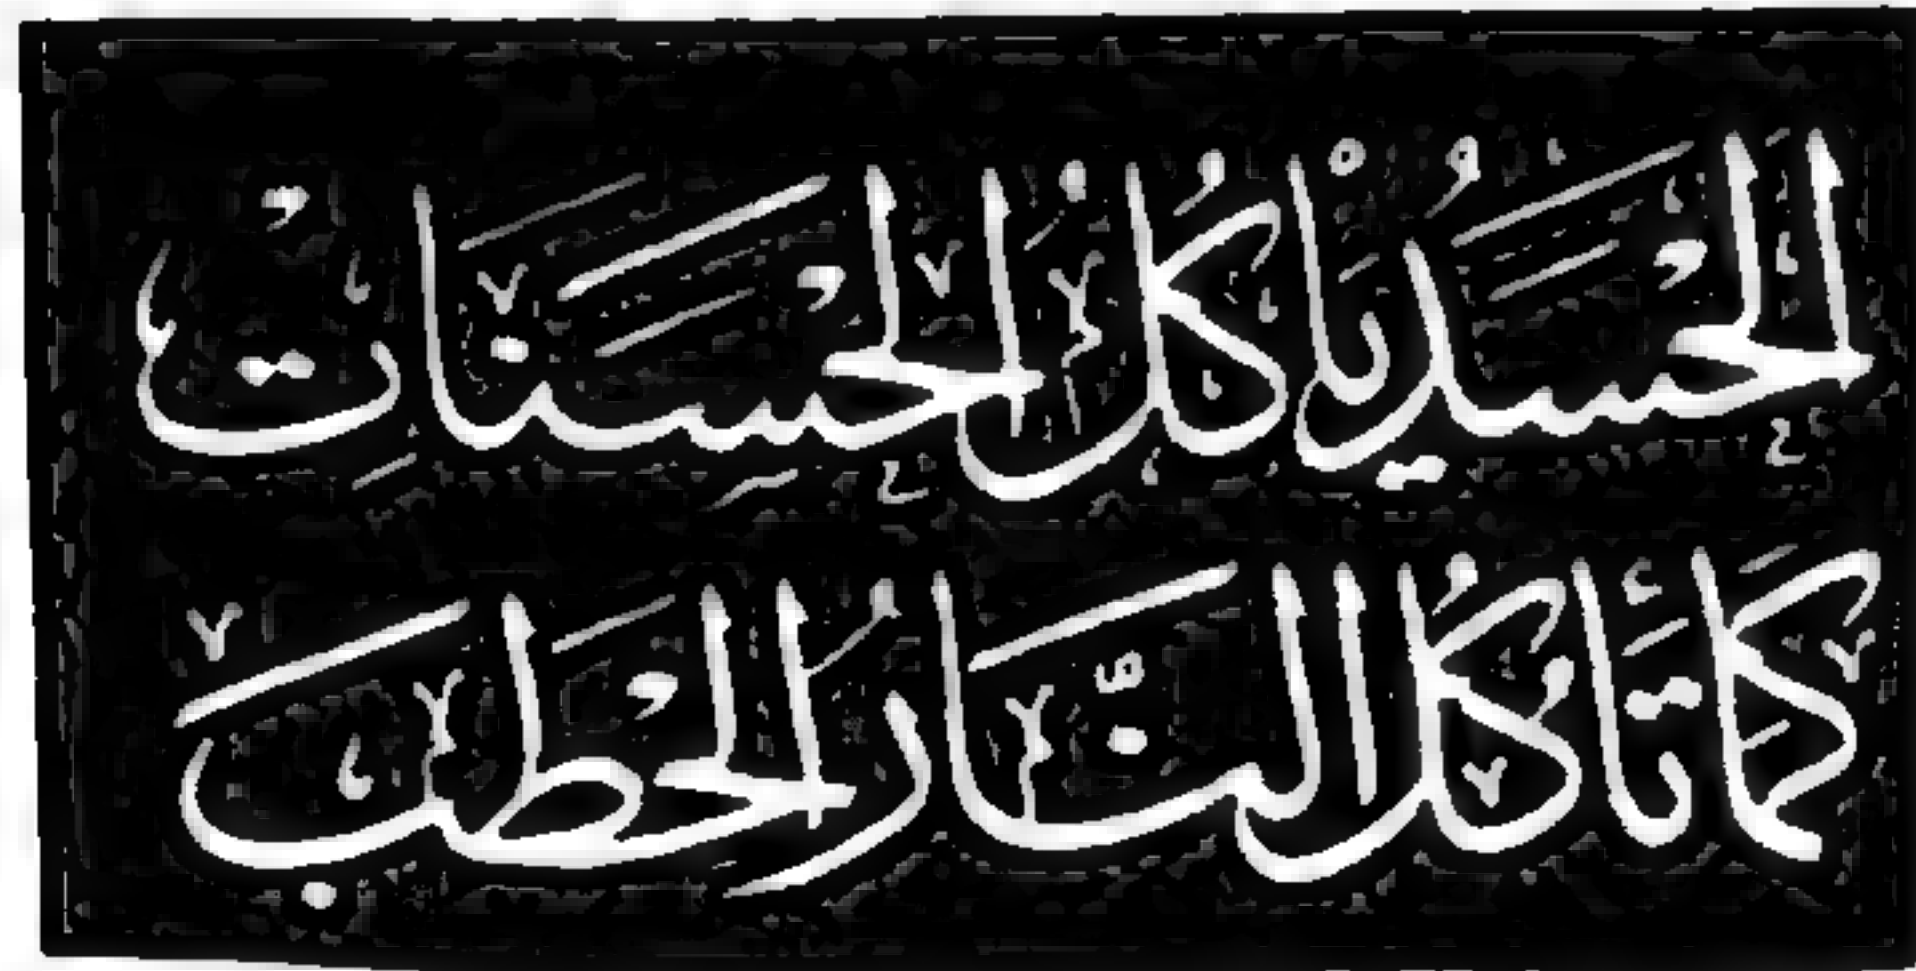 الحَسَدُ يَأْكُلُ الحَسَنَاتِ
كَمَا تَأْكُلُ النَّارُ الحَطَبَ